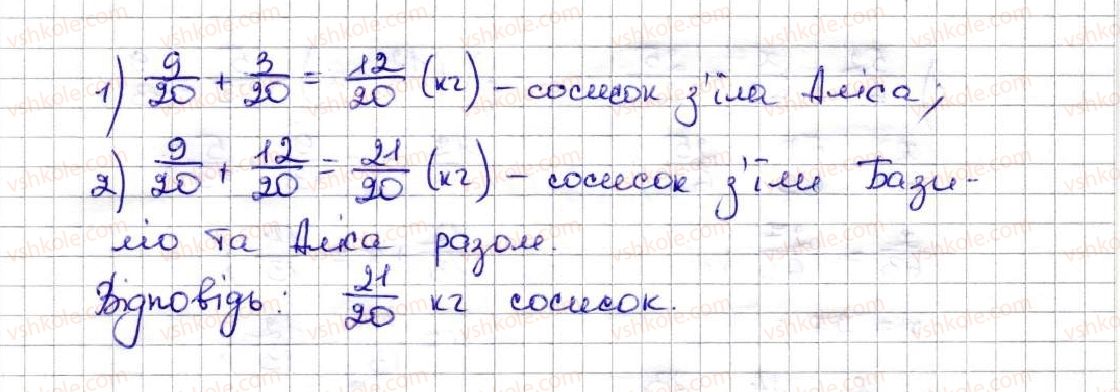 1) 9/20 + 3/20 = 12/20 (кг) – сосисок з'їла Аліса;
2) 9/20 + 12/20 = 21/20 (кг) – сосисок з'їли Бази-
ліо та Аліса разом.
Відповідь: 21/20 кг сосисок.